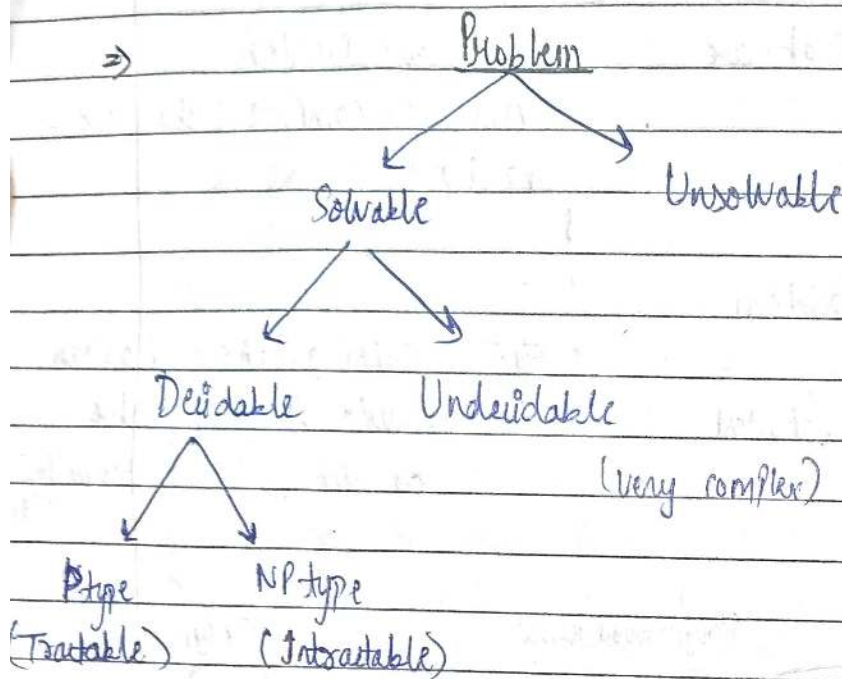 ⇒ Problem
Solvable Unsolvable
Decidable Undecidable
(very complex)
P type NP type
(Tractable) (Intractable)